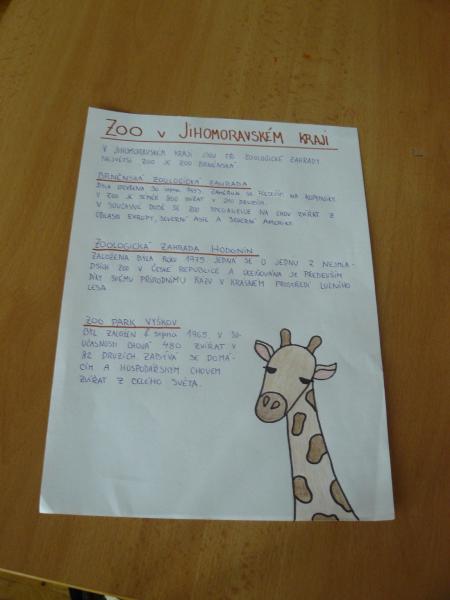 ZOO V JIHOMORAVSKÉM KRAJI
V JIHOMORAVSKÉM KRAJI JSOU TŘI ZOOLOGICKÉ ZAHRADY
NEJVĚTŠÍ ZOO JE ZOO BRNĚNSKÁ
BRNĚNSKÁ ZOOLOGICKÁ ZAHRADA
BYLA OTEVŘENA 30. srpna 1953. ZAMĚŘUJE SE NA
V ZOO JE TÉMĚŘ 800 ZVÍŘAT V 210 DRUZÍCH.
V SOUČASNÉ DOBĚ SE ZOO SPECIALIZUJE NA CHOV ZVÍŘAT Z
OBLASTI EVROPY, SEVERNÍ ASIE A SEVERNÍ AMERIKY.
ZOOLOGICKÁ ZAHRADA HODONÍN
ZALOŽENA BYLA ROKU 1975 JEDNÁ SE O JEDNU Z NEJMLA-
DŠÍCH ZOO V ČESKÉ REPUBLICE A OCEŇOVÁNA JE PŘEDEVŠÍM
DÍKY SVÉMU PŘÍRODNÍMU RÁZU V KRÁSNÉM PROSTŘEDÍ LUŽNÍHO
LESA.
ZOO PARK VYŠKOV
BYL ZALOŽEN 6. srpna 1965. V SO-
UČASNOSTI CHOVÁ 480 ZVÍŘAT V
82 DRUZÍCH ZABÝVÁ SE DOMÁ-
CÍM A HOSPODÁŘSKÝM CHOVEM
ZVÍŘAT Z CELÉHO SVĚTA.